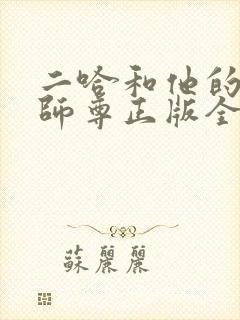 二哈和他的
師尊正版全
蘇麗麗